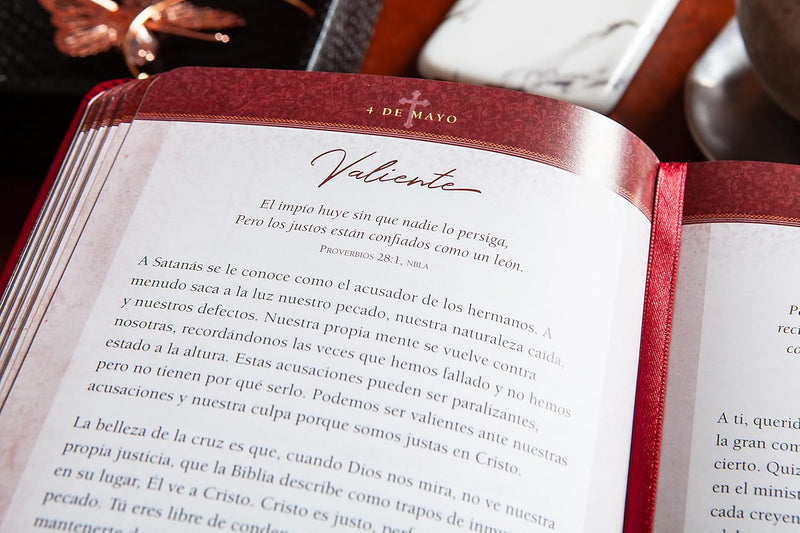 4 DE MAYO
Valiente
El impío huye sin que nadie lo persiga,
Pero los justos están confiados como un león.
Proverbios 28:1, NBLA
A Satanás se le conoce como el acusador de los hermanos. A
menudo saca a la luz nuestro pecado, nuestra naturaleza caída,
y nuestros defectos. Nuestra propia mente se vuelve contra
nosotras, recordándonos las veces que hemos fallado y no hemos
estado a la altura. Estas acusaciones pueden ser paralizantes,
pero no tienen por qué serlo. Podemos ser valientes ante nuestras
acusaciones y nuestra culpa porque somos justas en Cristo.
La belleza de la cruz es que, cuando Dios nos mira, no ve nuestra
propia justicia, que la Biblia describe como trapos de
en su lugar, Él ve a Cristo. Cristo es justo,
pecado. Tú eres libre de
mantenerte
A ti,
la gran
cierto.
en el
cada